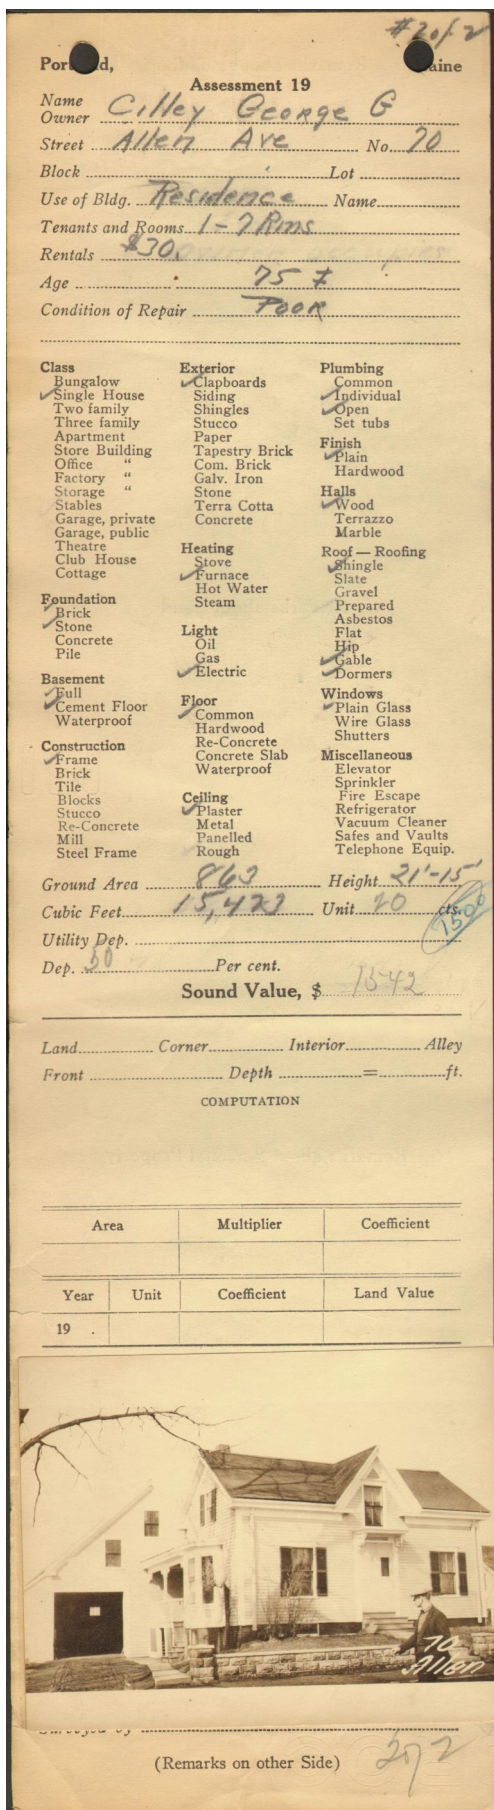 # 2 of 2
Portland, Maine
Assessment 19
Name
Owner Cilley George G
Street Allen Ave No. 70
Block Lot
Use of Bldg. Residence Name
Tenants and Rooms 1 - 7 Rms
Rentals $30.
Age 75 ±
Condition of Repair Poor
Class
Bungalow
Single House
Two family
Three family
Apartment
Store Building
Office "
Factory "
Storage "
Stables
Garage, private
Garage, public
Theatre
Club House
Cottage
Foundation
Brick
Stone
Concrete
Pile
Basement
Full
Cement Floor
Waterproof
Construction
Frame
Brick
Tile
Blocks
Stucco
Re-Concrete
Mill
Steel Frame
Exterior
Clapboards
Siding
Shingles
Stucco
Paper
Tapestry Brick
Com. Brick
Galv. Iron
Stone
Terra Cotta
Concrete
Heating
Stove
Furnace
Hot Water
Steam
Light
Oil
Gas
Electric
Floor
Common
Hardwood
Re-Concrete
Concrete Slab
Waterproof
Ceiling
Plaster
Metal
Panelled
Rough
Plumbing
Common
Individual
Open
Set tubs
Finish
Plain
Hardwood
Halls
Wood
Terrazzo
Marble
Roof — Roofing
Shingle
Slate
Gravel
Prepared
Asbestos
Flat
Hip
Gable
Dormers
Windows
Plain Glass
Wire Glass
Shutters
Miscellaneous
Elevator
Sprinkler
Fire Escape
Refrigerator
Vacuum Cleaner
Safes and Vaults
Telephone Equip.
Ground Area 863 Height 21'-15'
Cubic Feet 15,423 Unit 20 cts.
1500
Utility Dep.
Dep. 50 Per cent.
Sound Value, $ 1542
Land Corner Interior Alley
Front Depth = ft.
COMPUTATION
Area Multiplier Coefficient
Year Unit Coefficient Land Value
19 .
70
Allen
Surveyed by
(Remarks on other Side) 2 of 2